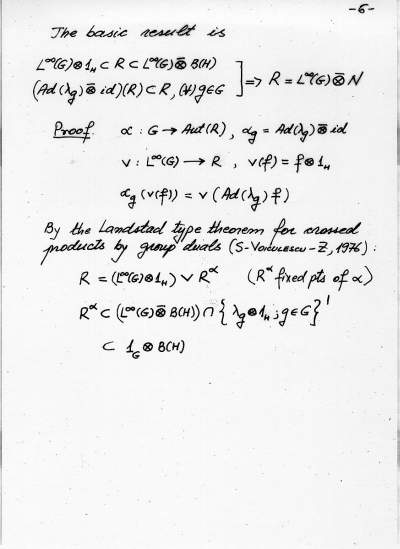 -6-
The basic result is
L^∞(G)⊗1_H ⊂ R ⊂ L^∞(G)⊗̄B(H)
(Ad(λ_g)⊗̄id)(R) ⊂ R, (∀)g∈G ] => R = L^∞(G)⊗̄N
Proof α : G → Aut(R), α_g = Ad(λ_g)⊗̄id
v : L^∞(G) → R , v(f) = f⊗1_H
α_g(v(f)) = v(Ad(λ_g)f)
By the Landstad type theorem for crossed
products by group duals (S-Voiculescu-Z, 1976) :
R = (L^∞(G)⊗1_H) ∨ R^α (R^α fixed pts of α)
R^α ⊂ (L^∞(G)⊗̄B(H)) ∩ {λ_g⊗1_H ; g∈G}'
⊂ 1_G ⊗ B(H)